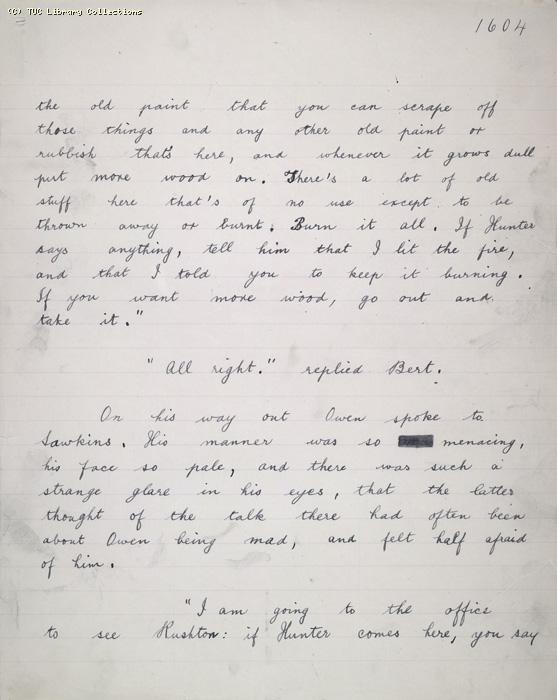 (C) TUC Library Collections
1604
the old paint that you can scrape off
those things and any other old paint or
rubbish that's here, and whenever it grows dull
put more wood on. There's a lot of old
stuff here that's of no use except to be
thrown away or burnt. Burn it all. If Hunter
says anything, tell him that I lit the fire,
and that I told you to keep it burning.
If you want more wood, go out and
take it."
"All right." replied Bert.
On his way out Owen spoke to
Sawkins. His manner was so menacing,
his face so pale, and there was such a
strange glare in his eyes, that the latter
thought of the talk there had often been
about Owen being mad, and felt half afraid
of him.
"I am going to the office
to see Rushton: if Hunter comes here, you say